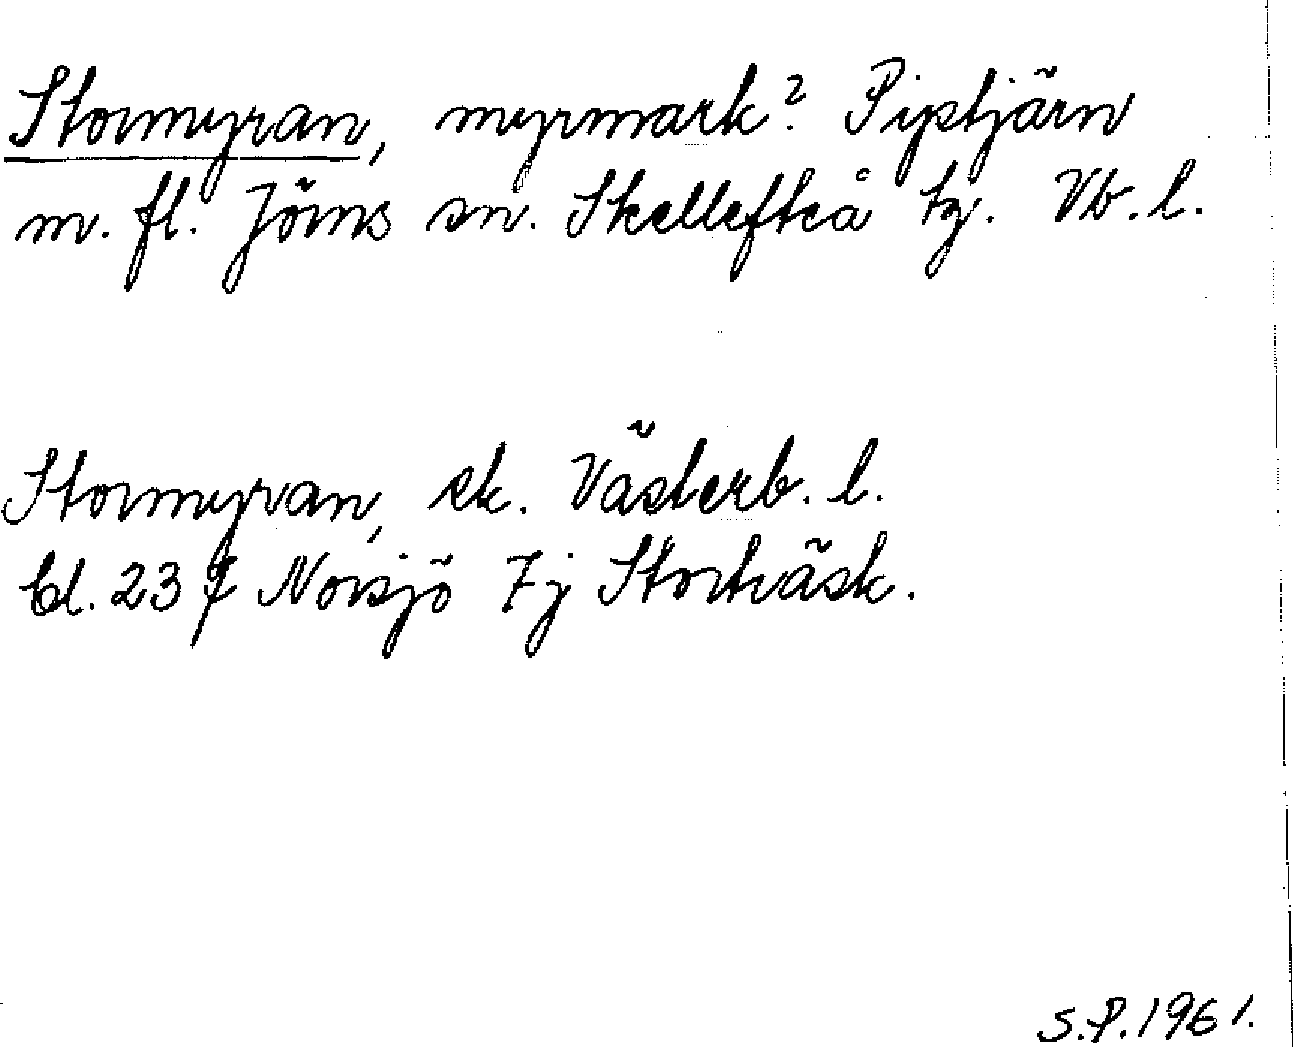 Stormyran, myrmark? Pipstjärn
m. fl. Jörns sn. Skellefteå tg. Vb. l.
Stormyran, ek. Västerb. l.
bl. 23 Norsjö 7j Storträsk.
S.P. 1961.